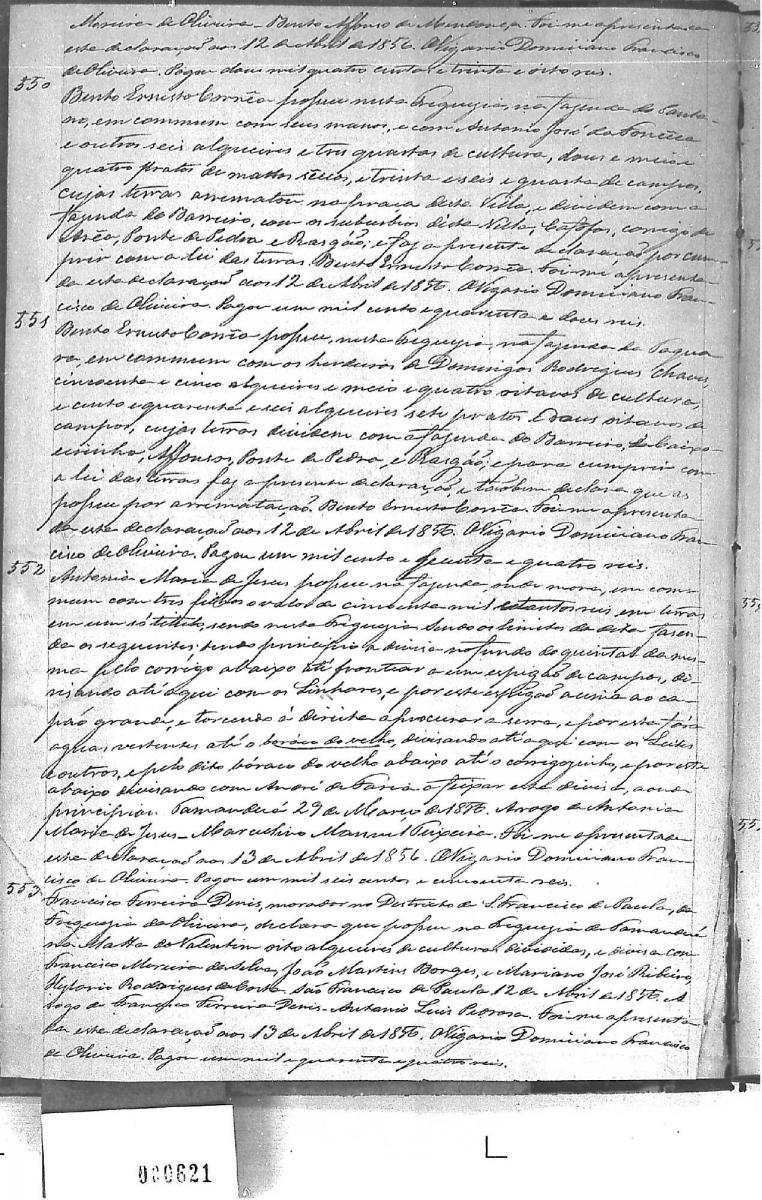 Moreira de Oliveira - Bento Affonso de Mendonça. Foi me apresentada
esta declaração aos 12 de Abril de 1856. O Vigario Domiciano Francisco
de Oliveira. Pagou dous mil quatro centos e trinta e oito reis.
550
Bento Ernesto Corrêa possue nesta Freguezia, na fazenda do Panta-
no, em commum com seus manos, e com Antonio José da Fonsêca
e outros seis alqueires e tres quartas de cultura, dous e meio e
quatro pratos de mattos sêcos, e trinta e seis e quarta de campos,
cujas terras arrematou na praça desta Villa, e dividem com a
fazenda do Barreiro, com os suburbios desta Villa, Cafofos, corrego da
Arêa, Ponte de Pedra e Rasgão; e faz a presente declaração por cum-
prir com a lei das terras. Bento Ernesto Corrêa. Foi-me apresenta-
da esta declaração aos 12 de Abril de 1856. O Vigario Domiciano Fran-
cisco de Oliveira. Pagou um mil cento e quarenta e dous reis.
551
Bento Ernesto Corrêa possue, nesta Freguezia, na fazenda da Taqua-
ra, em commum com os herdeiros de Domingos Rodrigues Chaves,
cincoenta e cinco alqueires e meio e quatro oitavos de cultura,
e cento e quarenta e seis alqueires sete pratos e dous oitavos de
campos, cujas terras dividem com a fazenda do Barreiro,
Affonsos, Ponte de Pedra, e Rasgão; e para cumprir com
a lei das terras faz a presente declaração, e tãobem declara que as
possue por arrematação. Bento Ernesto Corrêa. Foi-me apresenta-
da esta declaração aos 12 de Abril de 1856. O Vigario Domiciano Fran-
cisco de Oliveira. Pagou um mil cento e secenta e quatro reis.
552
Antonia Maria de Jesus possue na fazenda, onde mora, em com-
mum com tres filhos o valor de cincoenta mil e tantos reis, em terras
em um só titulo, sendo nesta Freguezia sendo os limites da dita fasen-
da os seguintes: tendo principio a divisa no fundo do quintal da mes-
ma pelo corrigo abaixo até frontiar a um espigão de campos, di-
visando até aqui com os Linhares, e por este espigão acima ao ca-
pão grande, e torcendo á direita a procurar a serra, e por esta fóra
aguas vertentes até o boráco do velho, divisando até aqui com os Leites
e outros, e pelo dito bóraco do velho abaixo até o corregozinho, e por este
abaixo divisando com André de Faria a feixar esta divisa, aonde
principiou. Tamanduá 29 de Março de 1856. Arrogo de Antonia
Maria de Jesus - Marcelino Manoel Teixeira. Foi me apresentada
esta declaração aos 13 de Abril de 1856. O Vigario Domiciano Fran-
cisco de Oliveira. Pagou um mil seis centos e cincoenta reis.
553
Francisco Ferreira Denis, morador no Destricto de S. Francisco de Paula, da
Freguezia da Oliveira, declara que possue na Freguezia de Tamanduá
na Matta do Valentim oito alqueires de culturas divididas, e divisa com
Francisco Moreira da Silva, João Martins Borges, e Mariano José Ribeiro,
Hylario Rodrigues da Costa. São Francisco de Paula 12 de Abril de 1856. A
rogo de Francisco Ferreira Denis - Antonio Luis Pedrosa. Foi me apresenta-
da esta declaração aos 13 de Abril de 1856. O Vigario Domiciano Francisco
de Oliveira. Pagou um mil e quarenta e quatro reis.
000621